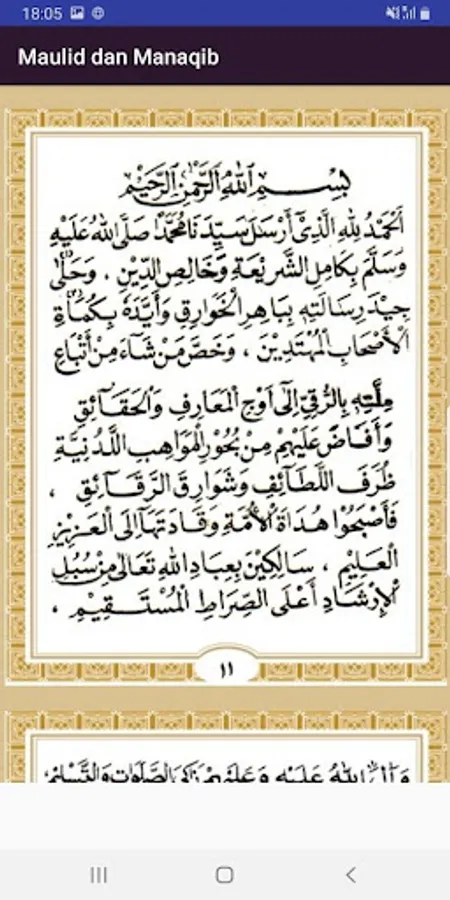 18:05
Maulid dan Manaqib
بِسْمِ اللهِ الرَّحْمٰنِ الرَّحِيْمِ
اَلْحَمْدُ لِلّٰهِ الَّذِيْ أَرْسَلَ سَيِّدَنَا مُحَمَّدًا صَلَّى اللهُ عَلَيْهِ
وَسَلَّمَ بِكَامِلِ الشَّرِيْعَةِ وَخَالِصِ الدِّيْنِ . وَحَلَّى
جِيْدَ رِسَالَتِهِ بِبَاهِرِ الْخَوَارِقِ وَأَيَّدَهُ بِكُمَاةِ
الْأَصْحَابِ الْمُهْتَدِيْنَ ، وَخَصَّ مَنْ شَاءَ مِنْ أَتْبَاعِ
مِلَّتِهِ بِالرُّقِيِّ إِلَى أَوْجِ الْمَعَارِفِ وَالْحَقَائِقِ
وَأَفَاضَ عَلَيْهِمْ مِنْ بُحُوْرِ الْمَوَاهِبِ اللَّدُنِيَّةِ
ظُرَفَ اللَّطَائِفِ وَشَوَارِقَ الرَّقَائِقِ ،
فَأَصْبَحُوْا هُدَاةَ الْأُمَّةِ وَقَادَتَهَا إِلَى الْعَزِيْزِ
الْعَلِيْمِ ، سَالِكِيْنَ بِعِبَادِ اللهِ تَعَالَى مِنْ سُبُلِ
الْإِرْشَادِ أَعْلَى الصِّرَاطِ الْمُسْتَقِيْمِ ،
١١
اللهُ عَلَيْهِ وَعَلَيْهِمْ